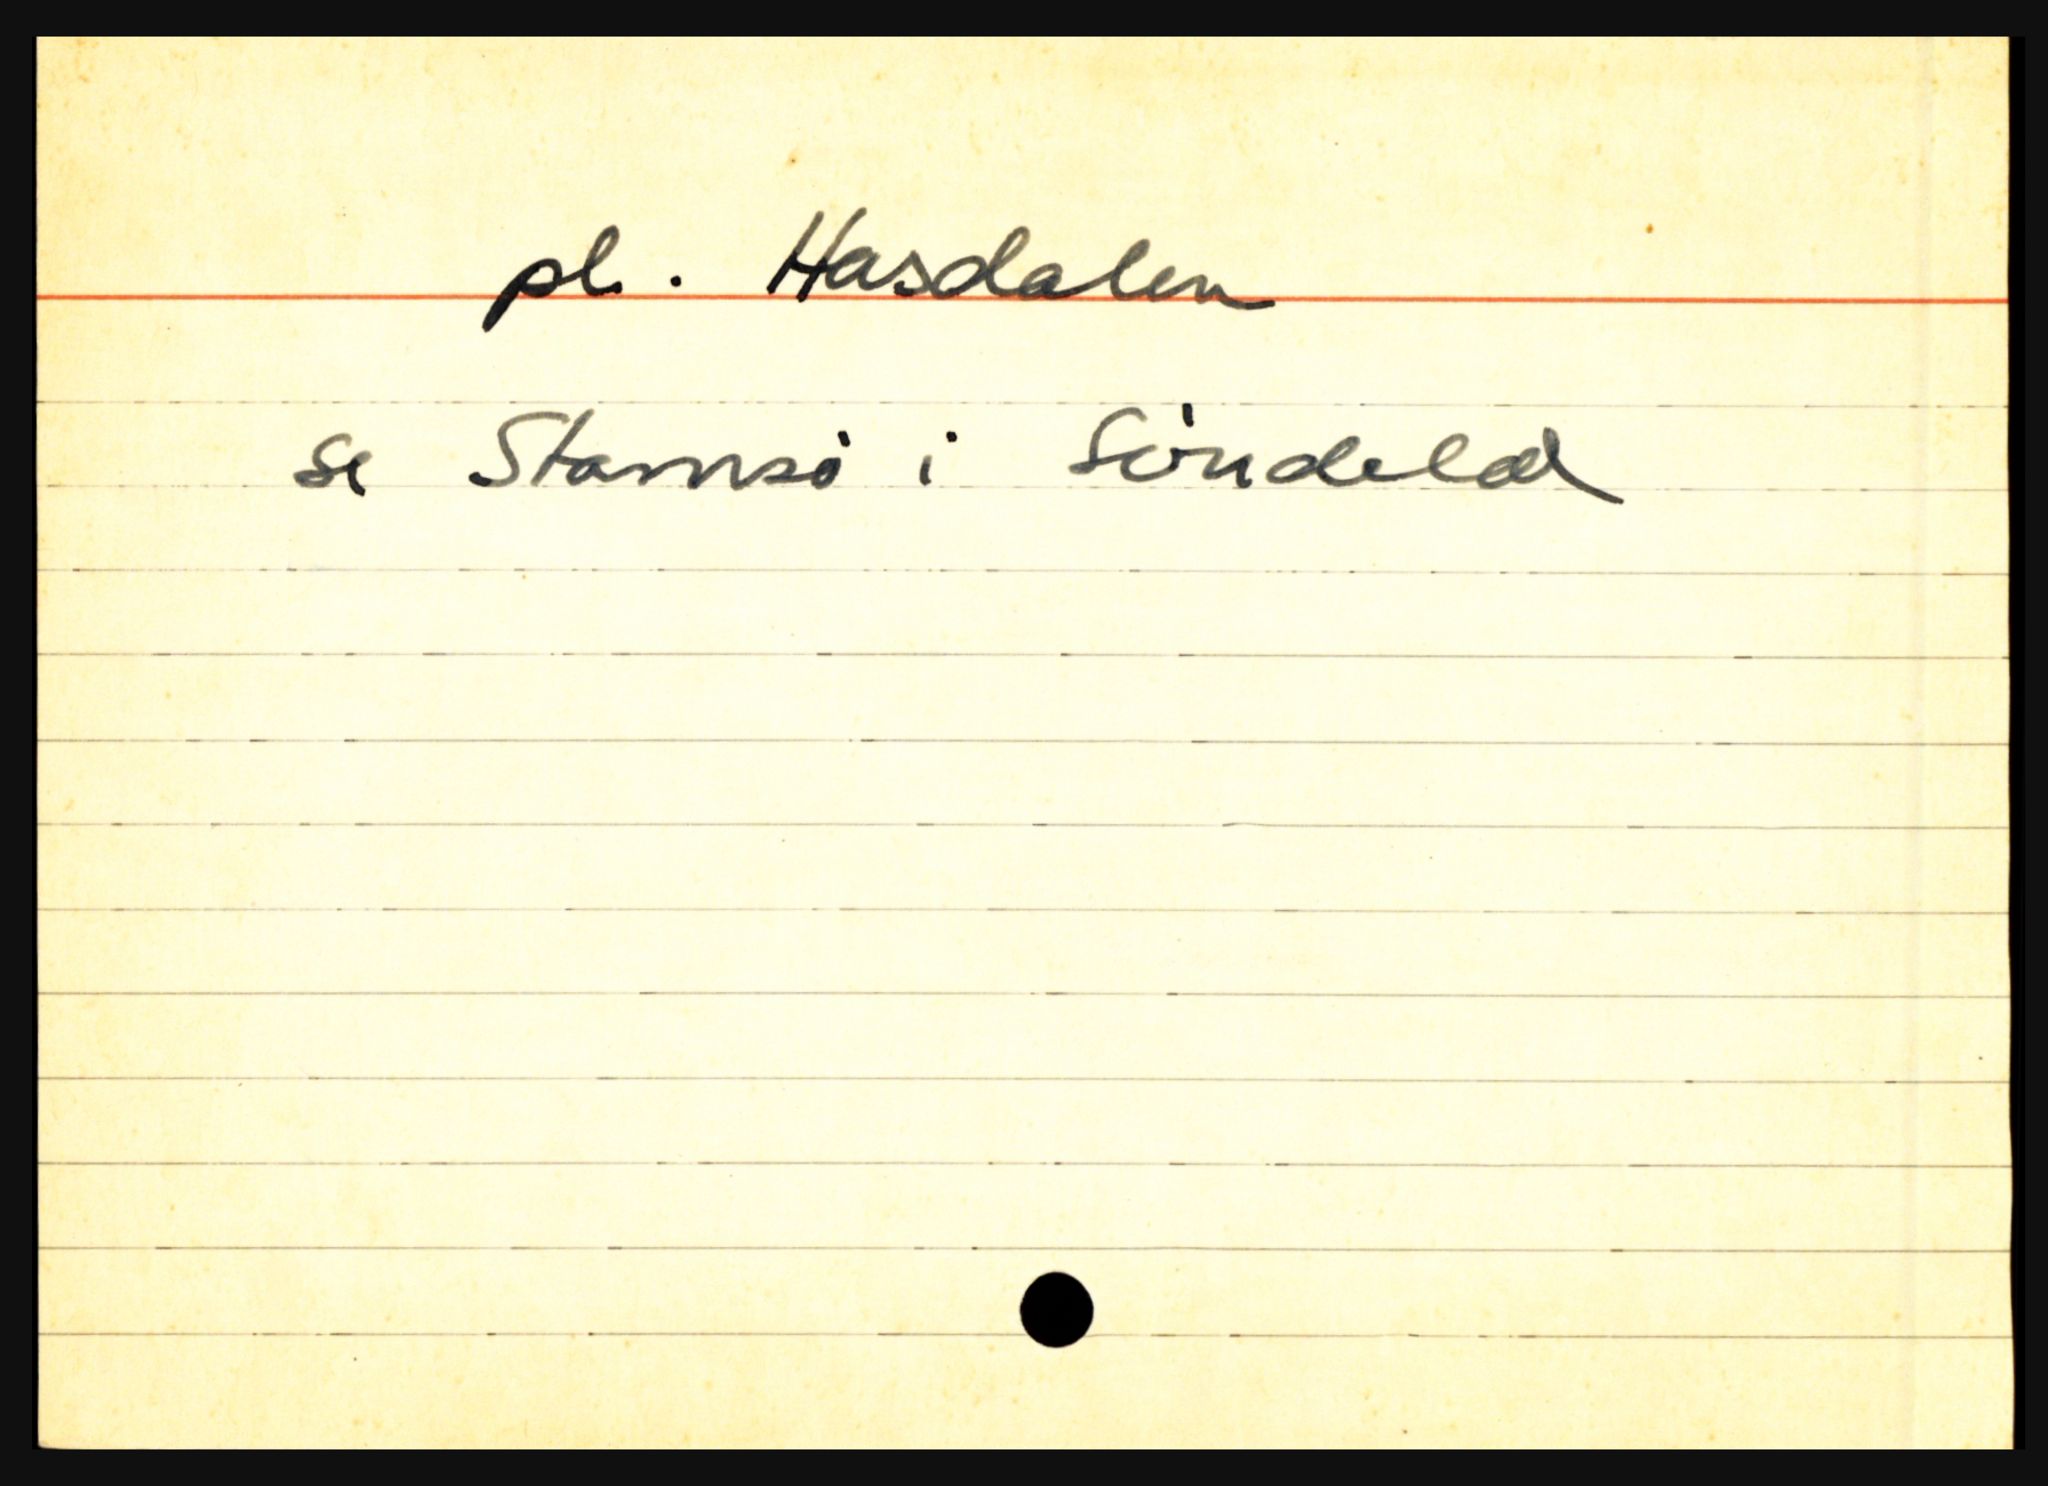 pl. Hasdalen
se Stamsö i Söndeled